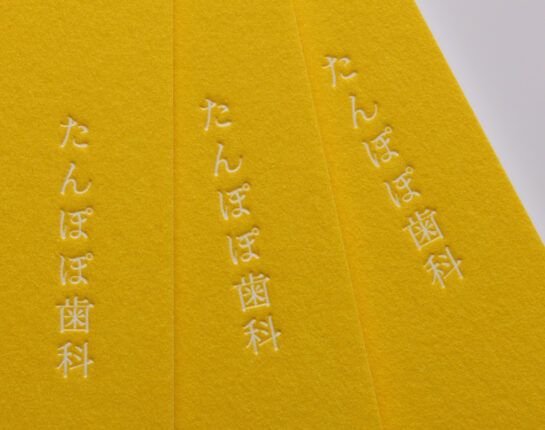 たんぽぽ歯科
たんぽぽ歯科
たんぽぽ歯科